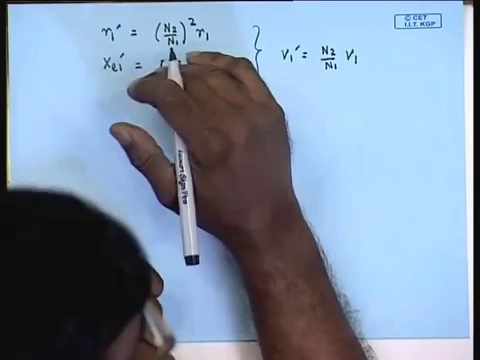 © CET
I.I.T. KGP
r₁′ = (N₂/N₁)² r₁
xₑ₁′ =
V₁′ = N₂/N₁ V₁